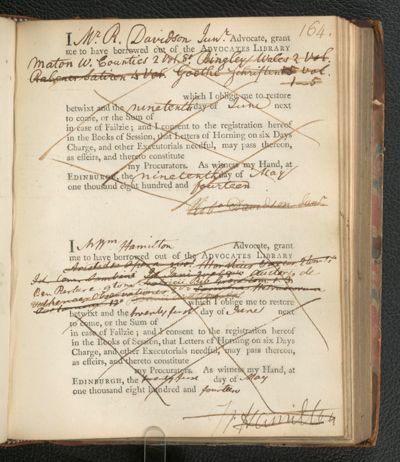 164.
I Mr. R. Davidson Junr. Advocate, grant
me to have borrowed out of the ADVOCATES LIBRARY
Maton W. Counties 2 Vol. Bingley Wales 2 Vol.
Goethe Schriften Vol.
1-5
which I oblige me to restore
betwixt and the nineteenth day of June next
to come, or the Sum of
in case of Failzie; and I consent to the registration hereof
in the Books of Session, that Letters of Horning on six Days
Charge, and other Executorials needful, may pass thereon,
as effeirs, and thereto constitute
my Procurators. As witness my Hand, at
EDINBURGH, the nineteenth day of May
one thousand eight hundred and fourteen
Davidson Junr.
I Wm Hamilton Advocate, grant
me to have borrowed out of the ADVOCATES LIBRARY
de
which I oblige me to restore
betwixt and the twenty first day of June next
to come, or the Sum of
in case of Failzie; and I consent to the registration hereof
in the Books of Session, that Letters of Horning on six Days
Charge, and other Executorials needful, may pass thereon,
as effeirs, and thereto constitute
my Procurators. As witness my Hand, at
EDINBURGH, the twenty first day of May
one thousand eight hundred and fourteen
Hamilton